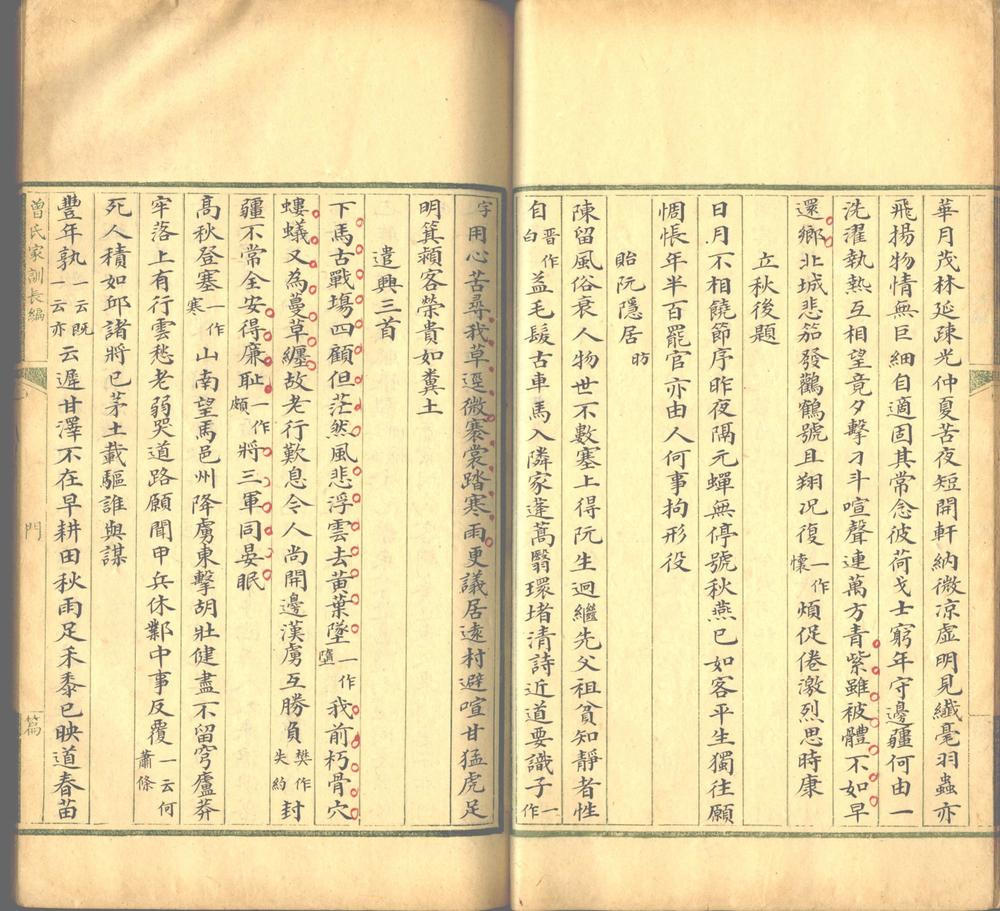 華月茂林延疎光仲夏苦夜短開軒納微凉虛明見纖毫羽蟲亦
飛揚物情無巨細自適固其常念彼荷戈士窮年守邊疆何由一
洗濯執熱互相望竟夕擊刁斗喧聲連萬方青紫雖被體不如早
還鄉北城悲笳發鸛鶴號且翔况復一作懷煩促倦激烈思時康
立秋後題
日月不相饒節序昨夜隔元蟬無停號秋燕已如客平生獨往願
惆悵年半百罷官亦由人何事拘形役
貽阮隱居昉
陳留風俗衰人物世不數塞上得阮生迥繼先父祖貧知靜者性
自晋作白益毛髮古車馬入隣家蓬蒿翳環堵清詩近道要識子一作
字用心苦尋我草逕微褰裳踏寒雨更議居遠村避喧甘猛虎足
明箕潁客榮貴如糞土
遣興三首
下馬古戰塲四顧但茫然風悲浮雲去黄葉墜一作墮我前朽骨穴
螻蟻又為蔓草纒故老行歎息今人尚開邊漢虜互勝負樊作失約封
疆不常全安得廉耻一作頗將三軍同晏眠
高秋登塞一作寒山南望馬邑州降虜東擊胡壯健盡不留穹廬莽
牢落上有行雲愁老弱哭道路願聞甲兵休鄴中事反覆一云何蕭條
死人積如邱諸將已茅土載驅誰與謀
豐年孰一云既一云亦云遲甘澤不在早耕田秋雨足禾黍已映道春苗
曾氏家訓長編
門
篇